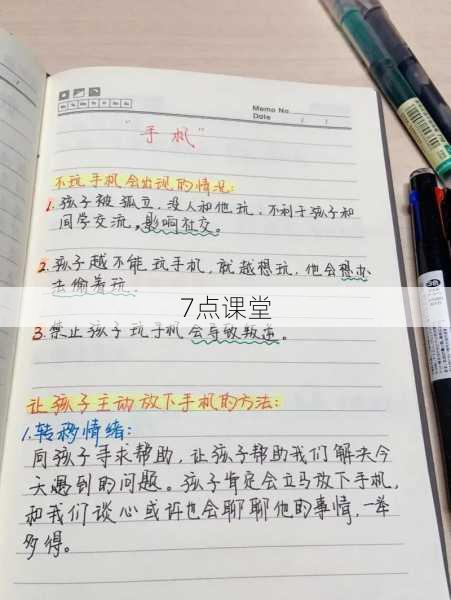 Memo No.
Date
"手机"
不玩手机会出现的情况:
1. 孩子被孤立,没人和他玩,不利于孩子和
同学交流,影响社交。
2. 孩子越不能玩手机,就越想玩,他会想办
法偷着玩.
7点课堂
3. 禁止孩子玩手机会导致叛逆。
让孩子主动放下手机的方法:
1.转移情绪:
向孩子寻求帮助,让孩子帮助我们解决今
天遇到的问题。孩子肯定会立马放下手机,
和我们谈心或许也会聊聊他的事情,一举
多得。